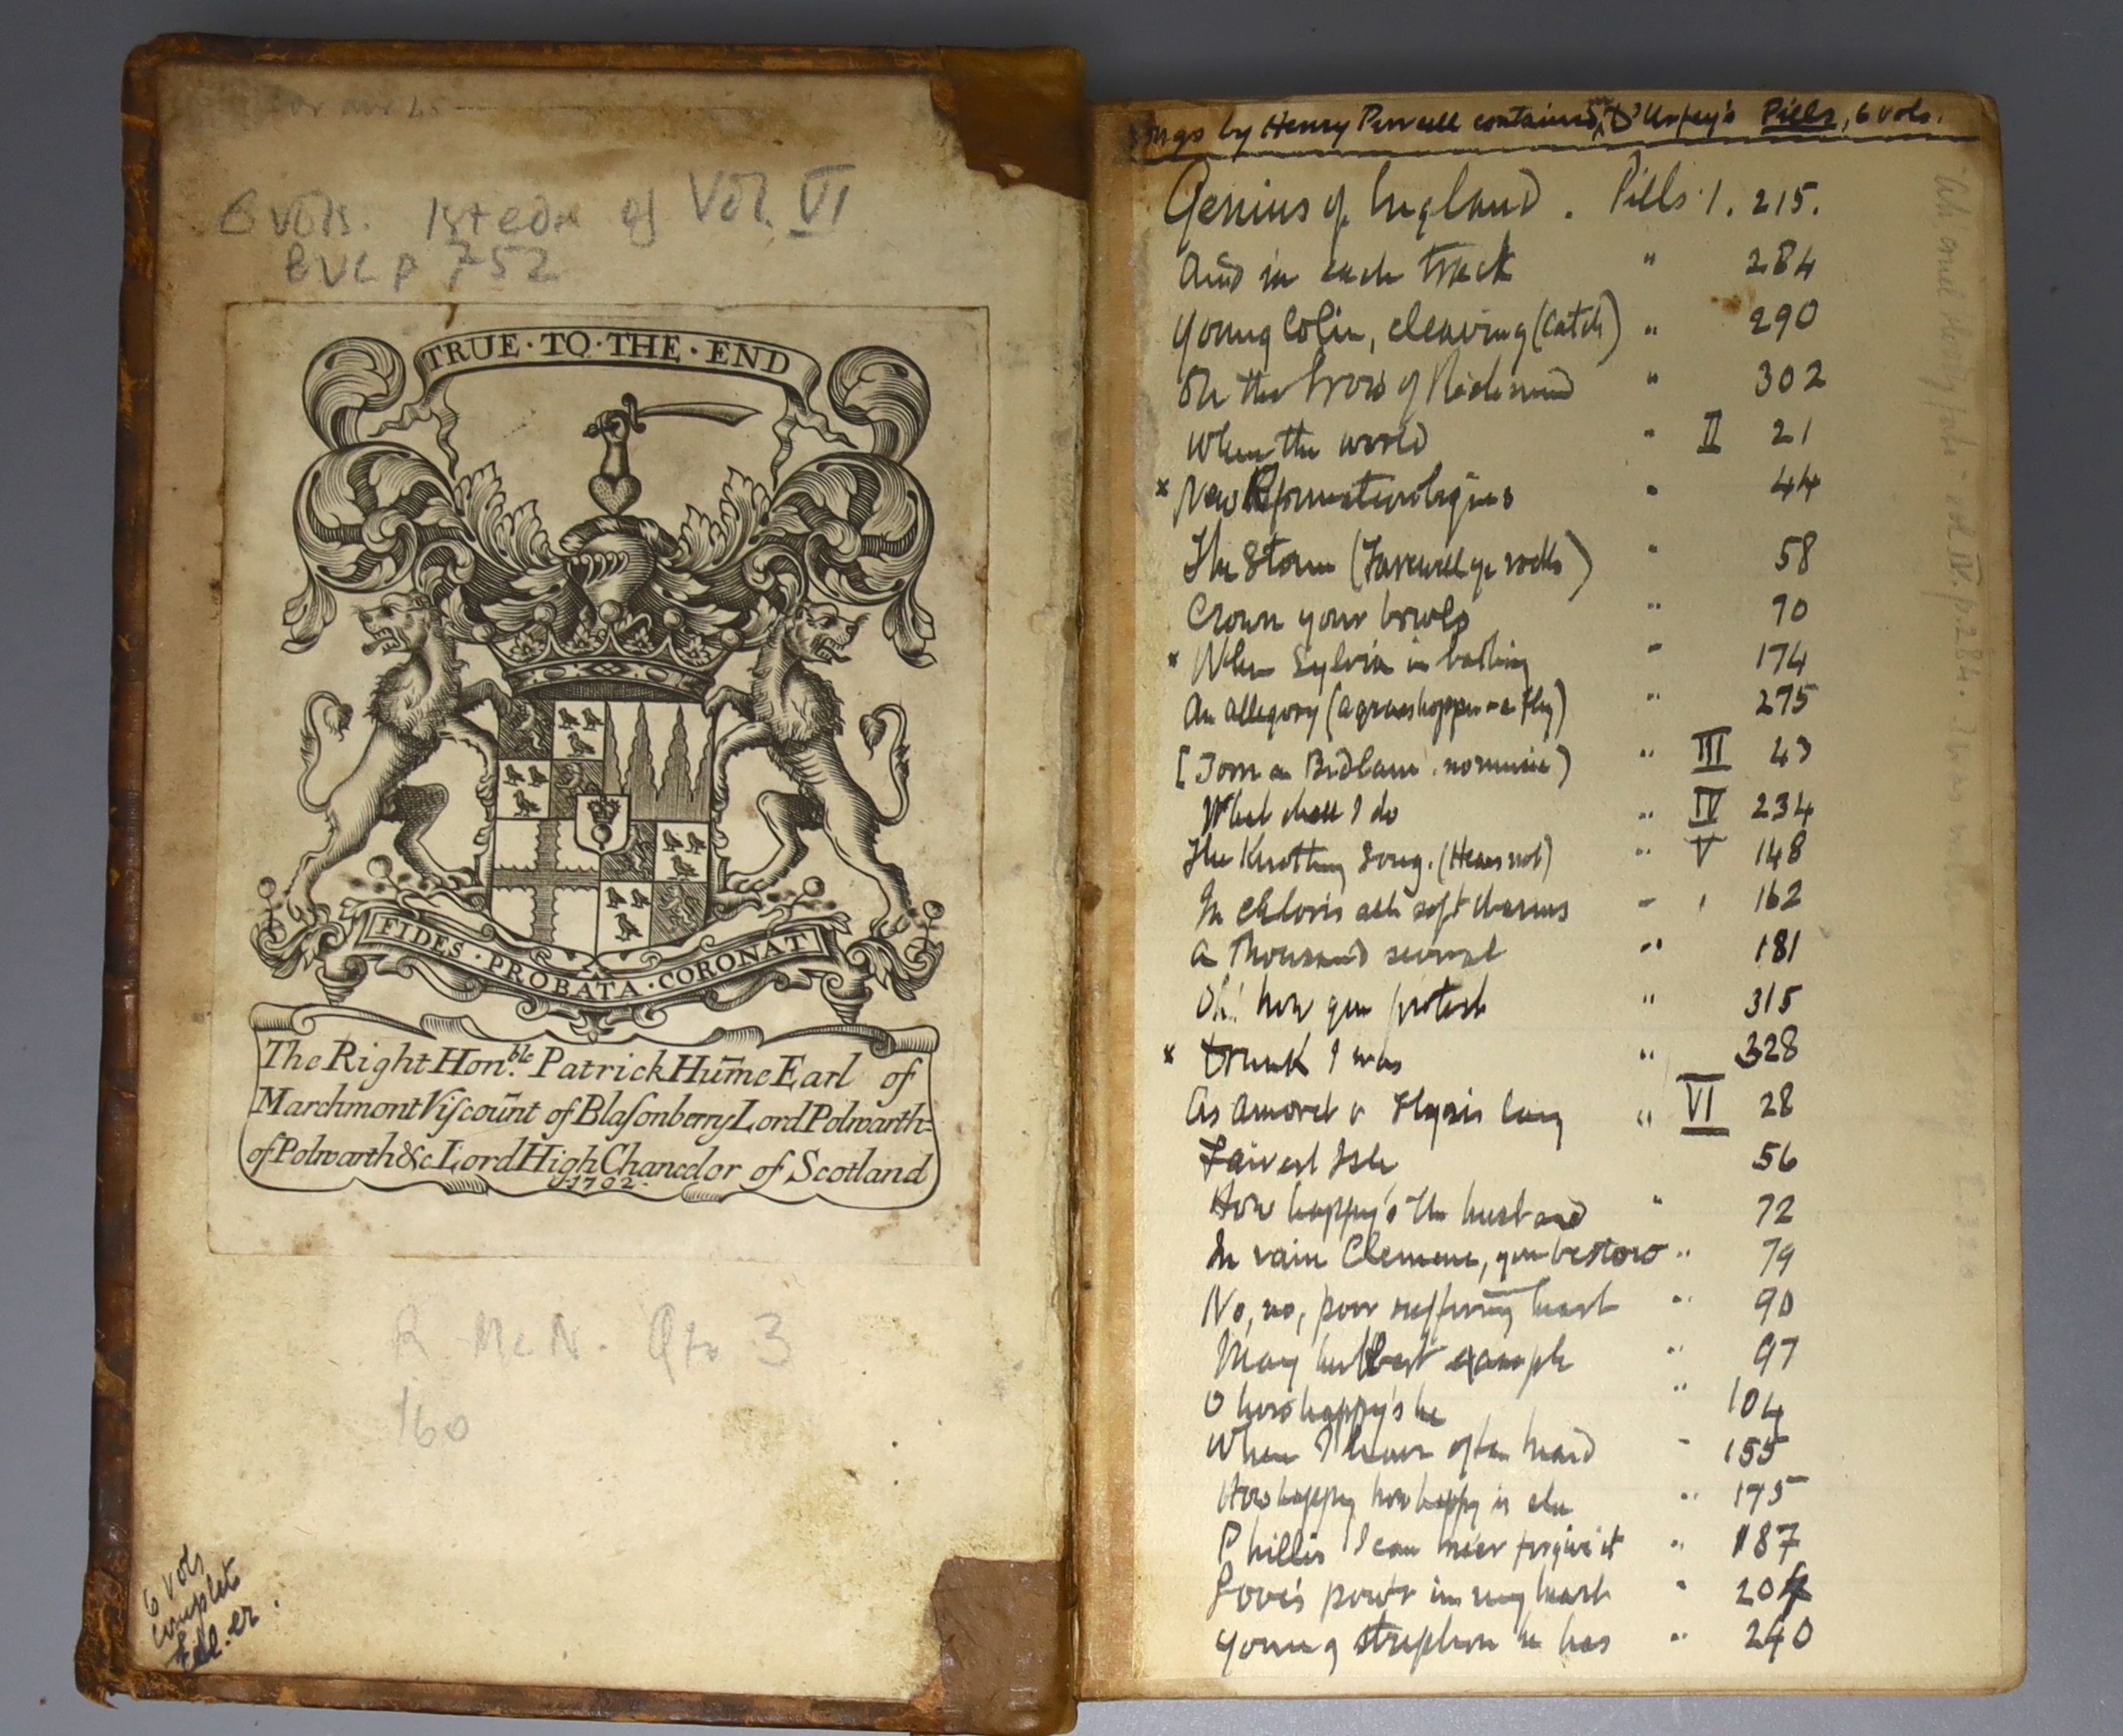 6 vols. 1st edn of Vol. VI
P 752
TRUE · TO · THE · END
FIDES · PROBATA · CORONAT
The Right Hon.ble Patrick Hume Earl of
Marchmont Viſcount of Blaſonberry Lord Polwarth
of Polwarth &c Lord High Chancelor of Scotland
1702.
R McN. Qto 3
160
6 vols
complete
by Henry Purcell contained in D'Urfey's Pills, 6 vols.
Genius of England. Pills 1. 215.
And in each track " 284
Young Colin, cleaving (catch) " 290
On the brow of Richmond " 302
When the world " II 21
x New Reformation begins " 44
The Storm (Farewell ye rocks) " 58
Crown your bowls " 70
x When Sylvia in bathing " 174
An allegory (a grasshopper & a fly) " 275
[Tom a Bedlam. no music) " III 43
What shall I do " IV 234
The Knotting Song. (Hears not) " V 148
In Chloris all soft charms " " 162
A Thousand several " 181
Oh! how you protest " 315
x Drunk I was " 328
As Amoret & Thyrsis lay " VI 28
Fairest Isle 56
How happy's the husband " 72
In vain Clemene, you bestow " 79
No, no, poor suffering heart " 90
May her blest example " 97
O how happy's he " 104
When I have often heard " 155
How happy how happy is she " 175
Phillis I can ne'er forgive it " 187
Love's pow'r in my heart " 204
Young Strephon he has " 240